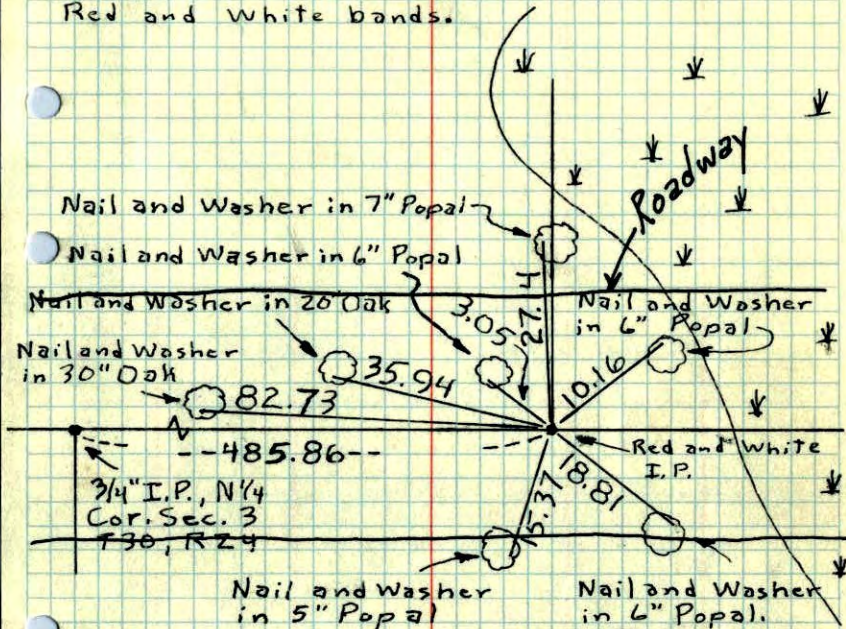 Red and White bands.
Roadway
Nail and Washer in 7" Popal
Nail and Washer in 6" Popal
Nail and Washer in 20" Oak
Nail and Washer
in 30" Oak
27.4
3.05
Nail and Washer
in 6" Popal
35.94
10.16
82.73
--485.86--
Red and White
I.P.
3/4" I.P., N1/4
Cor. Sec. 3
T30, R24
15.37
18.81
Nail and Washer
in 5" Popal
Nail and Washer
in 6" Popal.